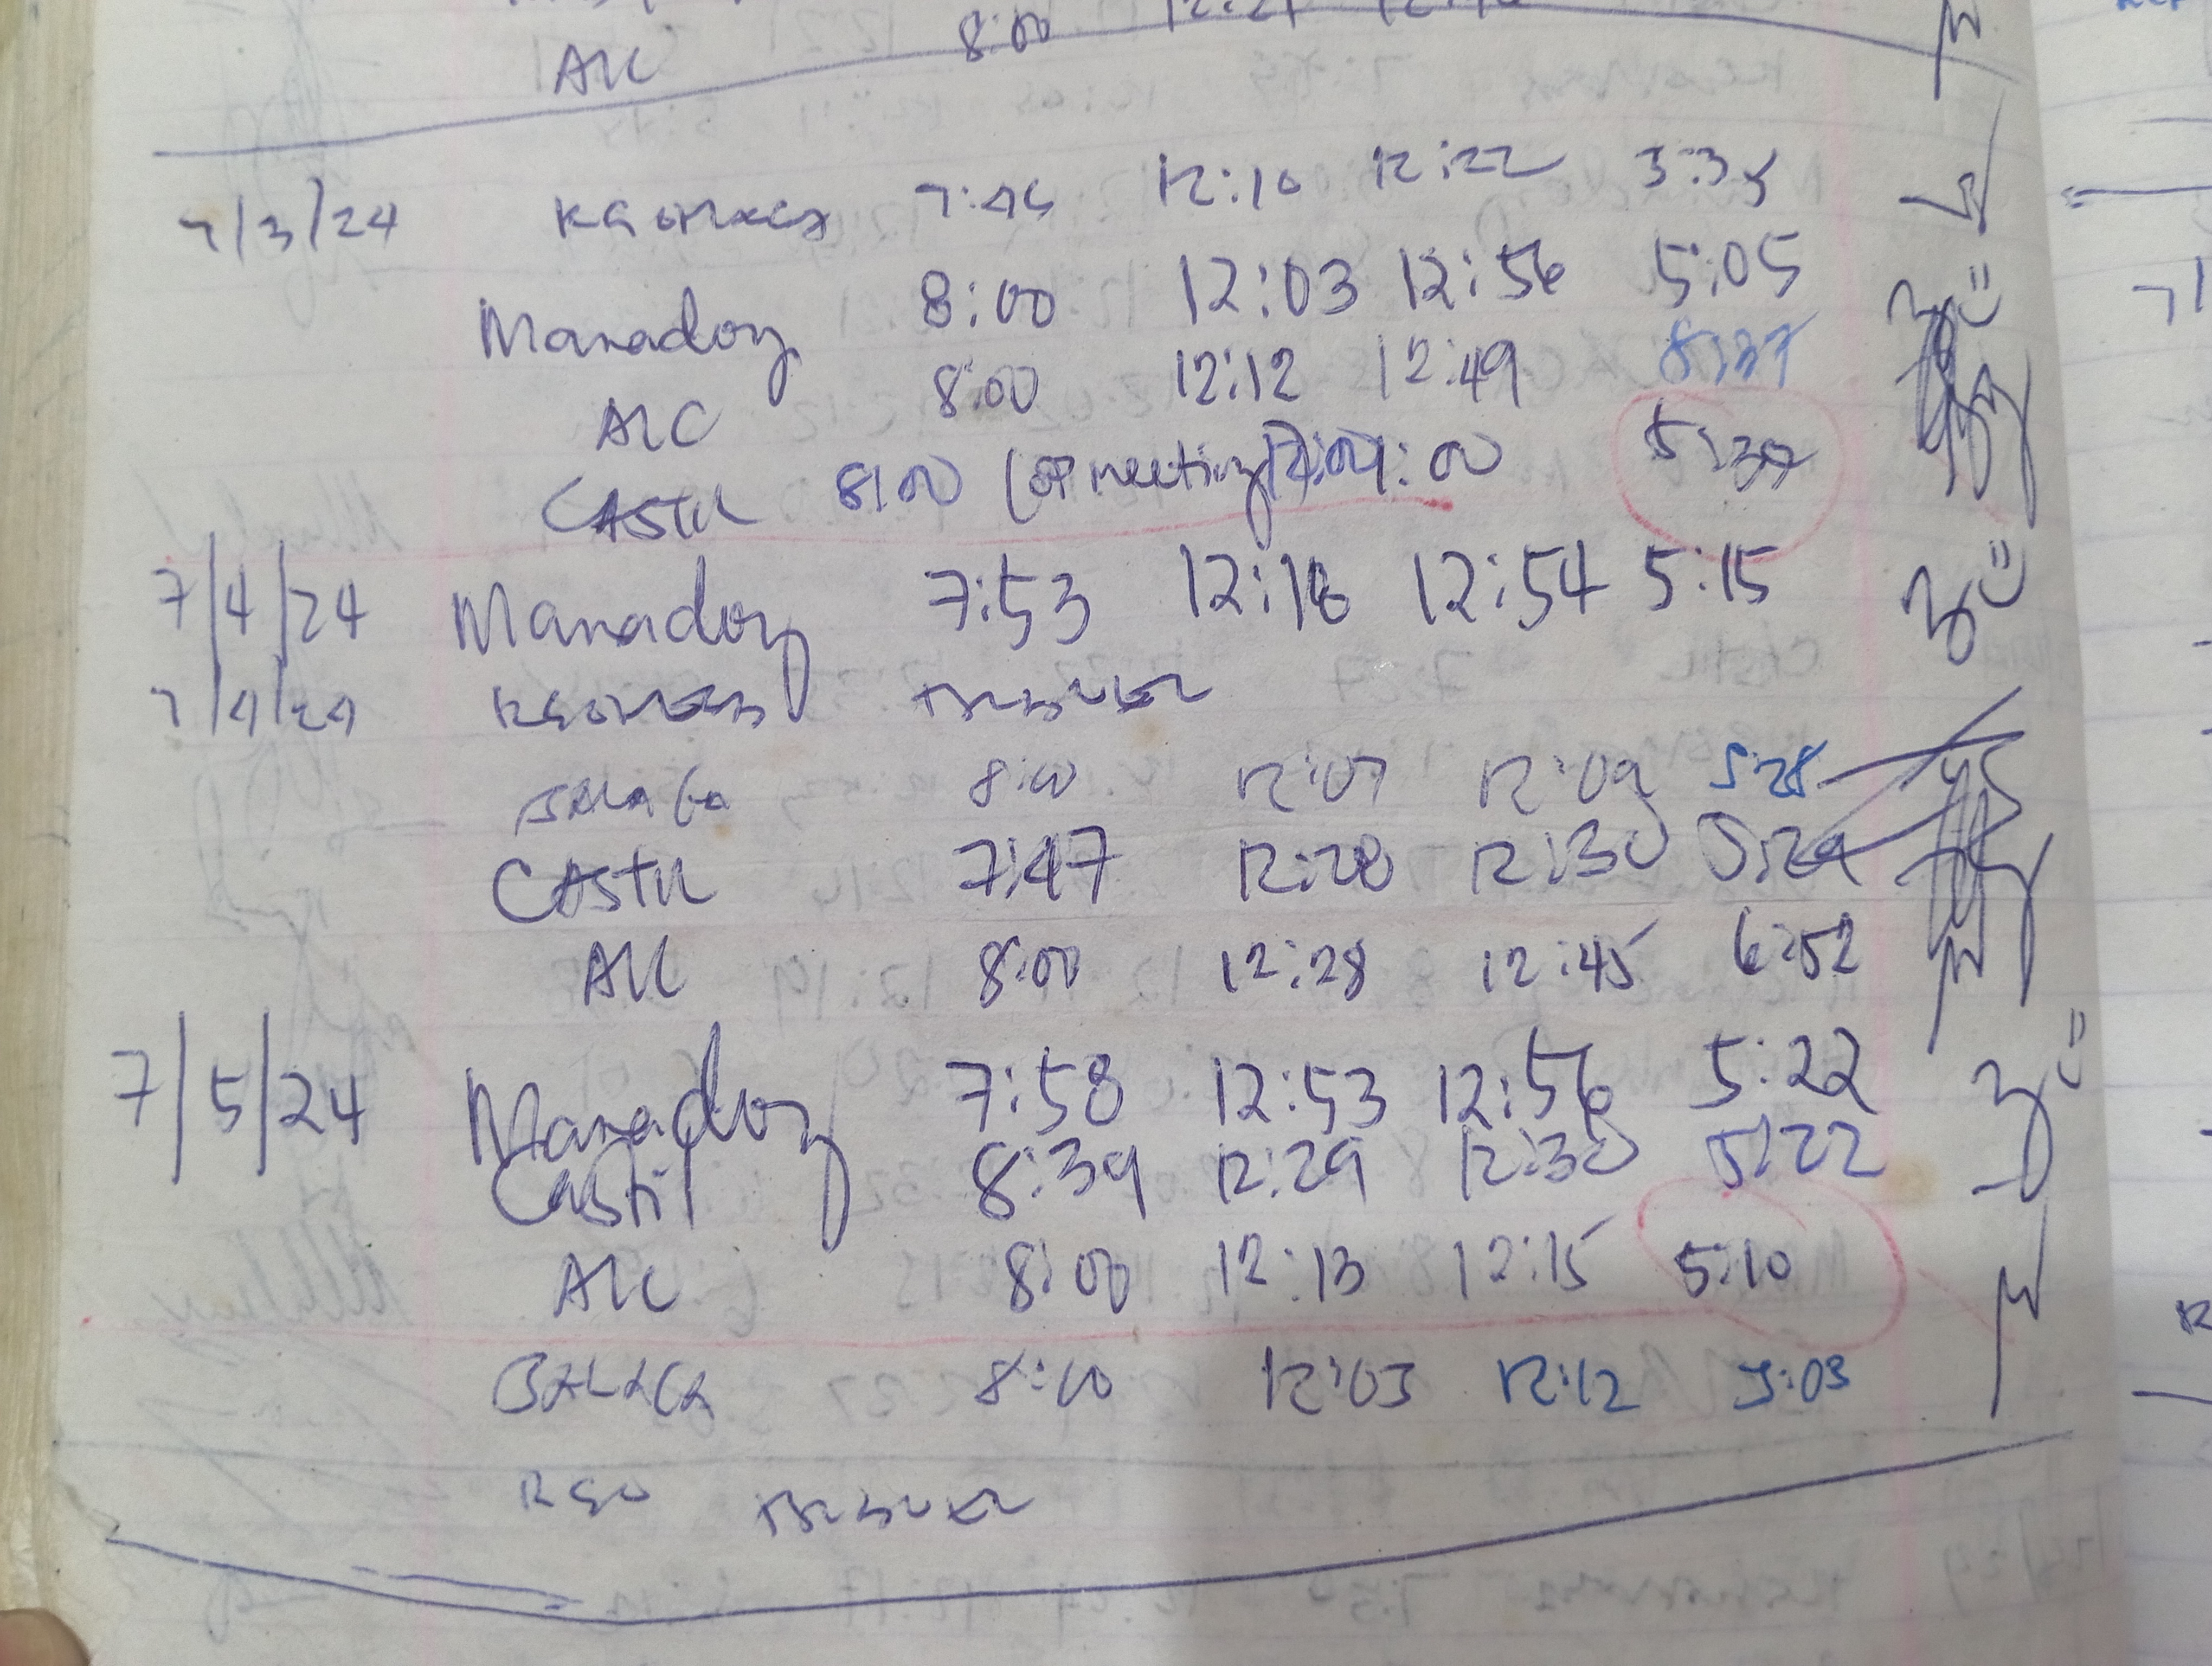 8:00
7/3/24 7:45 12:10 12:22 5:35
Manadoy 8:00 12:03 12:56 5:05
ALC 8:00 12:12 12:49
CASTIL 8:00 (OP meeting) :00
7/4/24 Manadoy 7:53 12:18 12:54 5:15
7/4/24
8:00 12:07 12:09 5:28
CASTIL 7:47 12:28 12:30 5:29
ALC 8:00 12:28 12:45 6:52
7/5/24 Manadoy 7:58 12:53 12:56 5:22
Castil 8:39 12:29 12:30 5:22
ALC 8:00 12:13 12:15 5:10
BALAGA 8:00 12:03 12:12 5:03
RGO